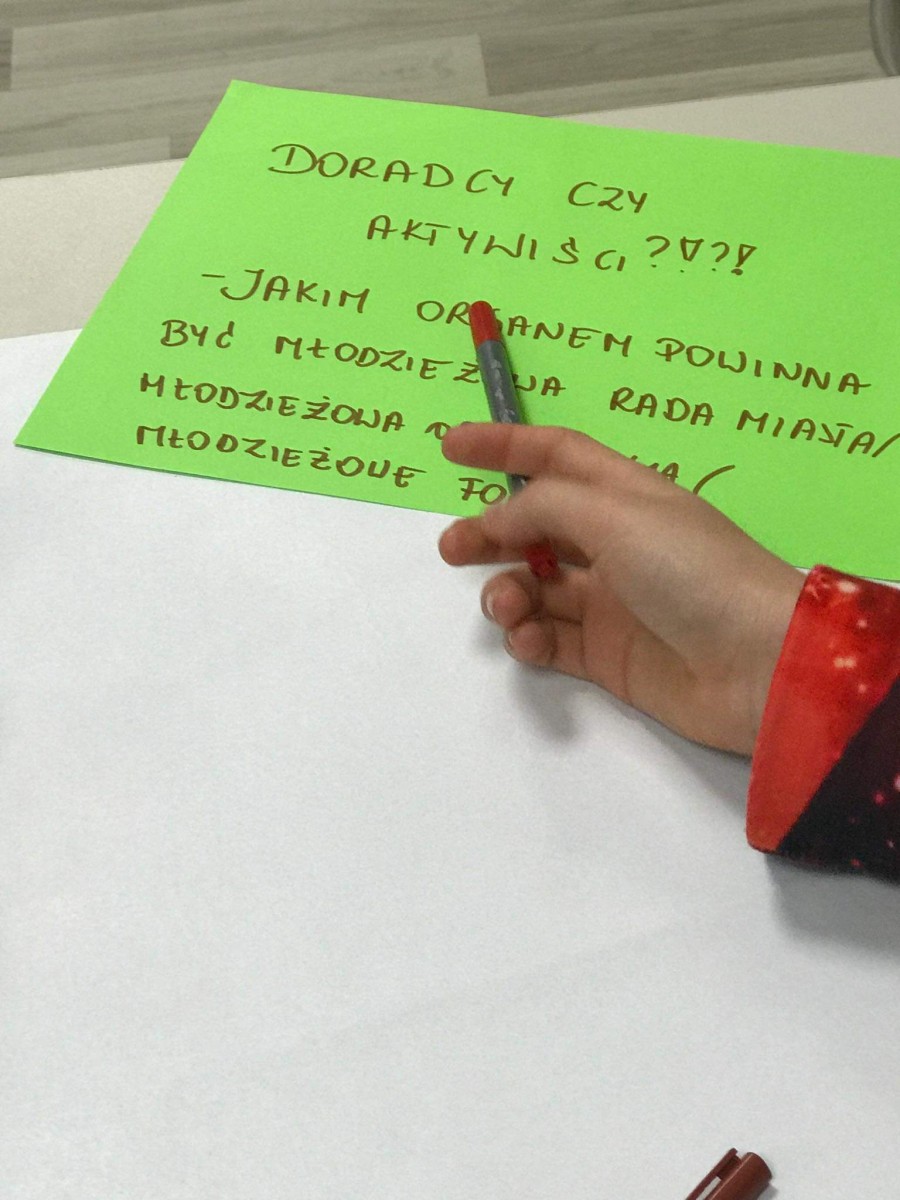 DORADCY CZY
AKTYWIŚCI?!?!
-JAKIM ORGANEM POWINNA
BYĆ MŁODZIEŻOWA RADA MIASTA/
MŁODZIEŻOWA
MŁODZIEŻOWE